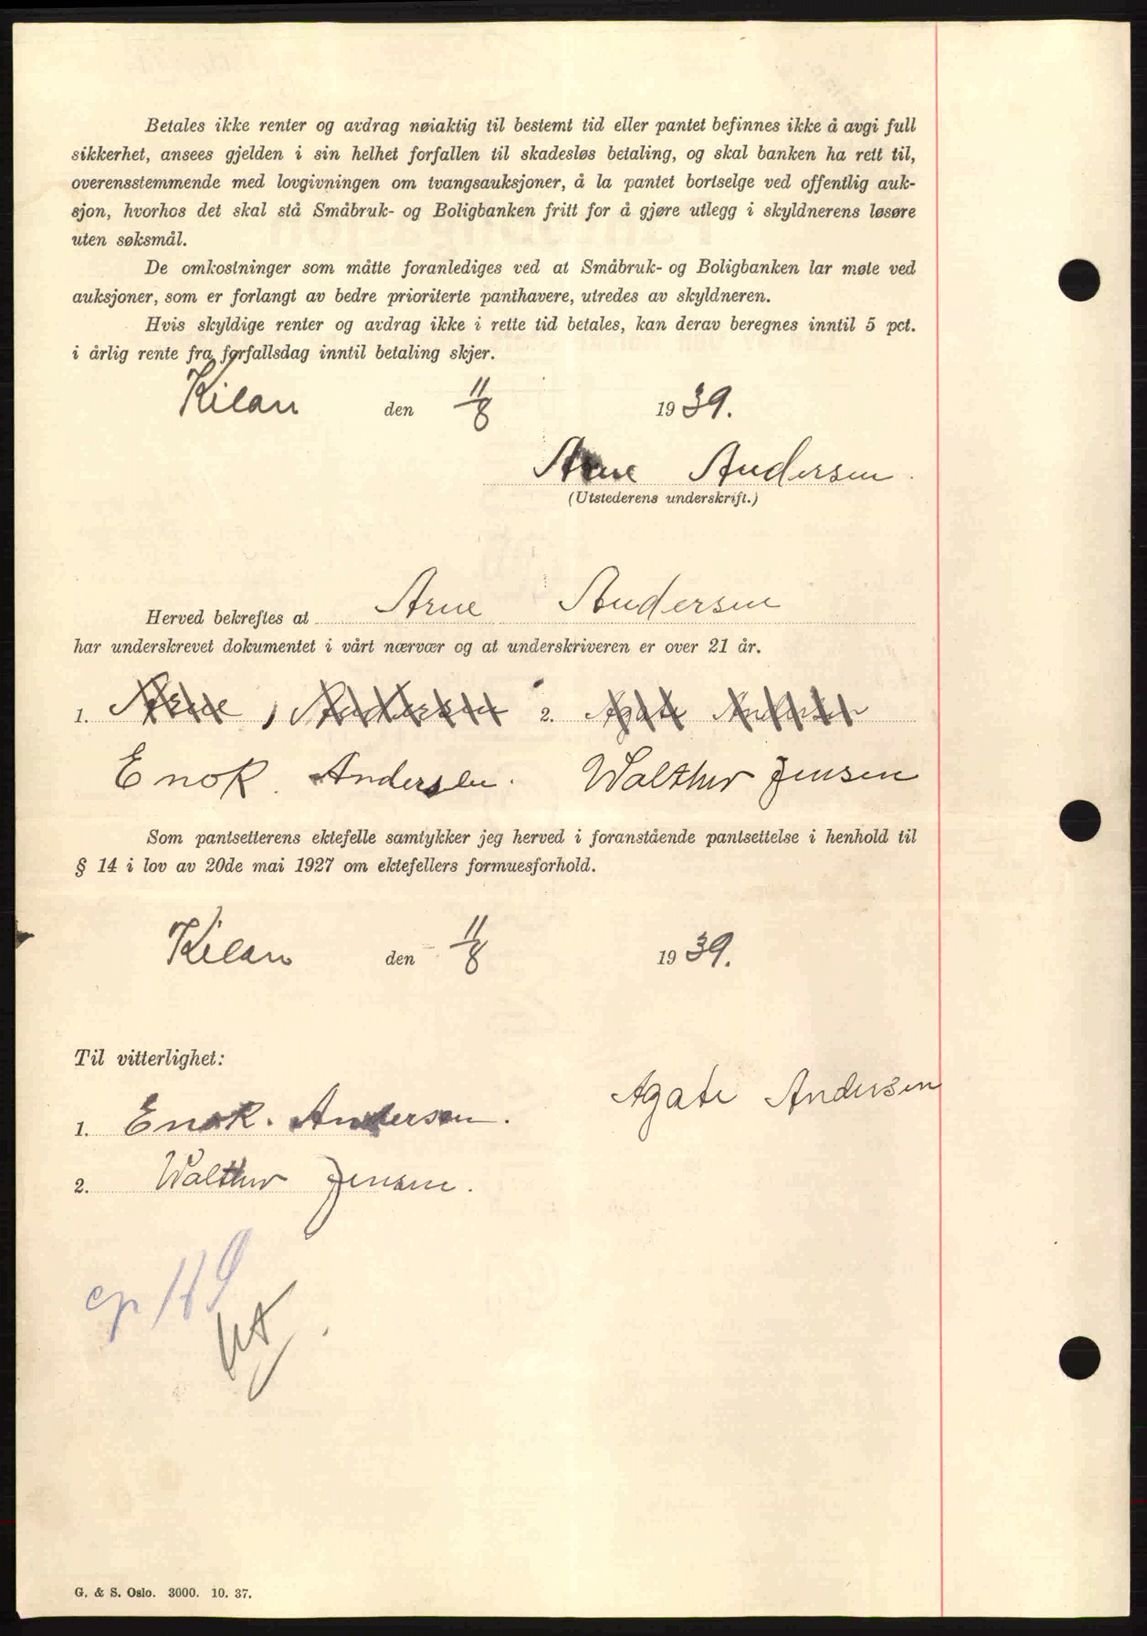 Betales ikke renter og avdrag nøiaktig til bestemt tid eller pantet befinnes ikke å avgi full
sikkerhet, ansees gjelden i sin helhet forfallen til skadesløs betaling, og skal banken ha rett til,
overensstemmende med lovgivningen om tvangsauksjoner, å la pantet bortselge ved offentlig auk-
sjon, hvorhos det skal stå Småbruk- og Boligbanken fritt for å gjøre utlegg i skyldnerens løsøre
uten søksmål.
De omkostninger som måtte foranlediges ved at Småbruk- og Boligbanken lar møte ved
auksjoner, som er forlangt av bedre prioriterte panthavere, utredes av skyldneren.
Hvis skyldige renter og avdrag ikke i rette tid betales, kan derav beregnes inntil 5 pct.
i årlig rente fra forfallsdag inntil betaling skjer.
Kilan den 11/8 1939.
Arne Andersen.
(Utstederens underskrift.)
Herved bekreftes at Arne Andersen
har underskrevet dokumentet i vårt nærvær og at underskriveren er over 21 år.
1. Arne, Andersen 2. Agate Andersen
Enok. Andersen. Walther Jensen
Som pantsetterens ektefelle samtykker jeg herved i foranstående pantsettelse i henhold til
§ 14 i lov av 20de mai 1927 om ektefellers formuesforhold.
Kilan den 11/8 1939.
Til vitterlighet:
Agate Andersen
1. Enok. Andersen.
2. Walther Jensen.
G. & S. Oslo. 3000. 10. 37.